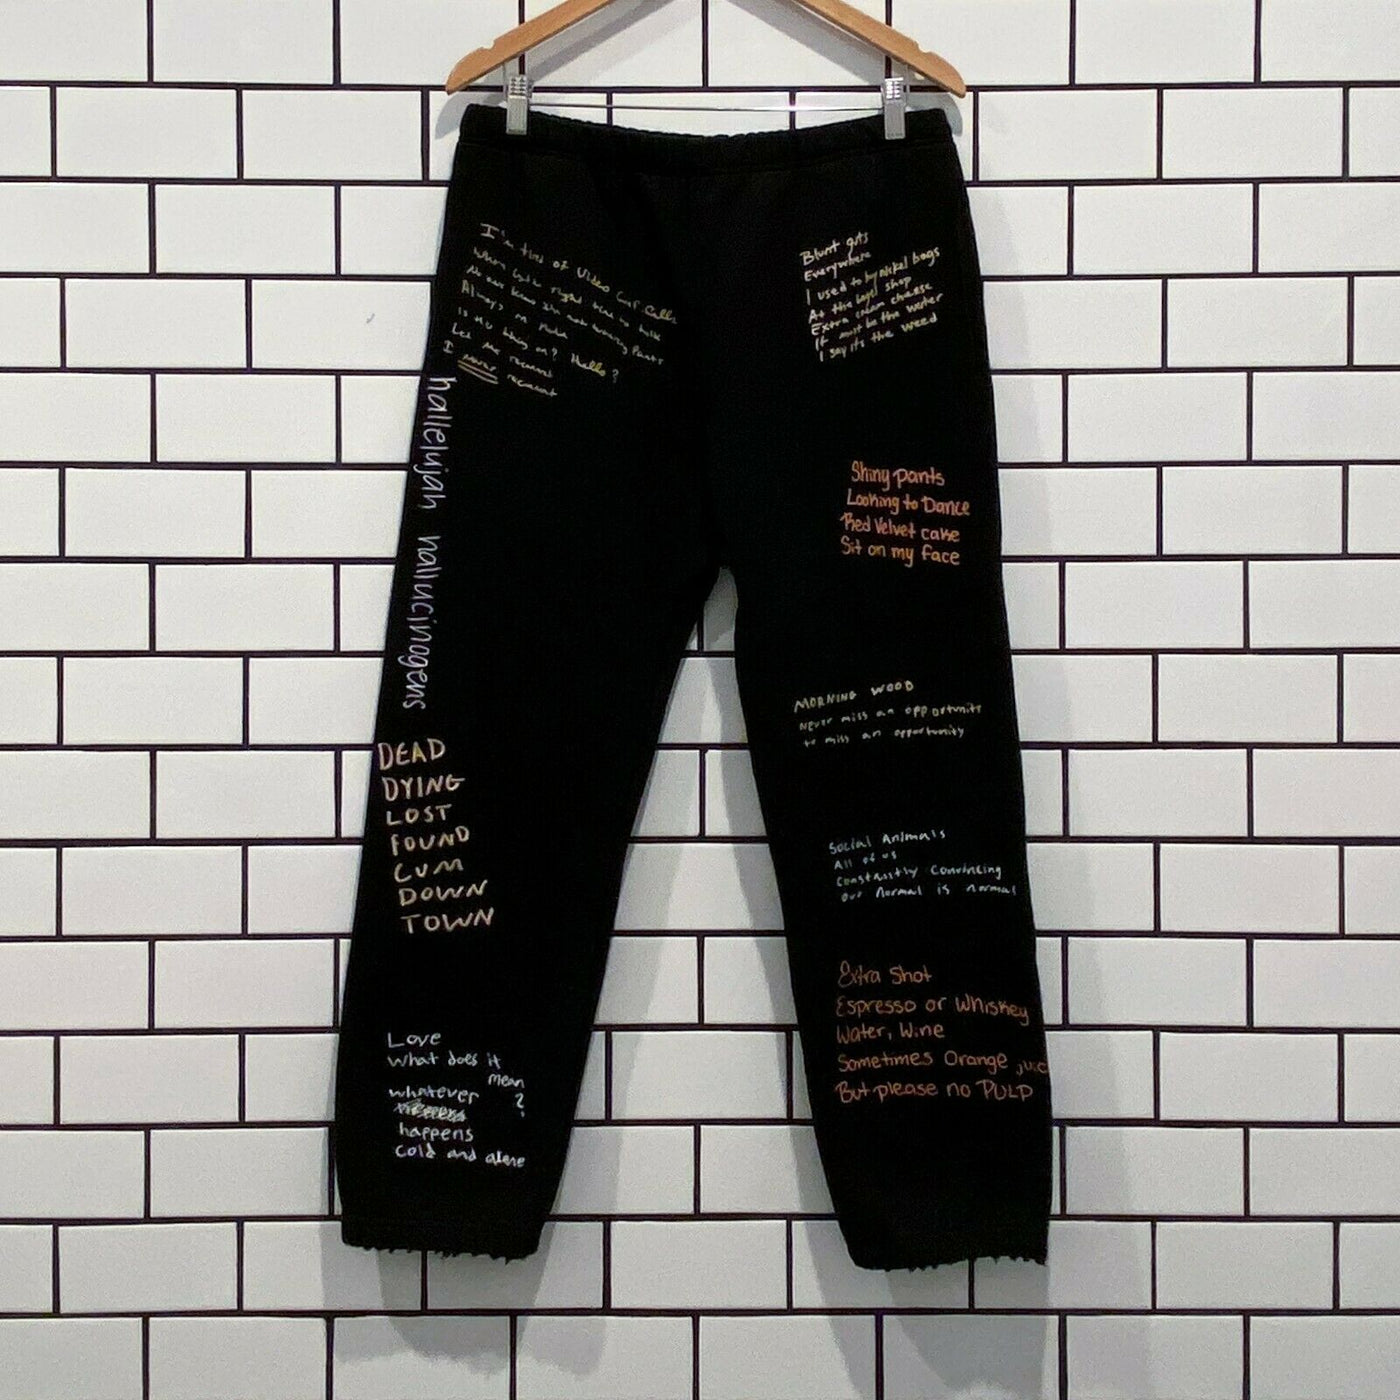 I'm tired of Video Conf. Calls
When
Never know not wearing Pants
Always on
Is my on? Hello?
Let me
I never
Blunt guts
Everywhere
I used to by nickel bags
At the bagel shop
Extra cream cheese
It must be the water
I say its the weed
hallelujah hallucinogens
Shiny pants
Looking to Dance
Red Velvet cake
Sit on my face
MORNING WOOD
Never miss an opportunity
to miss an opportunity
DEAD
DYING
LOST
FOUND
CUM
DOWN
TOWN
Social Animals
All of us
Constantly Convincing
Our Normal is normal
Extra Shot
Espresso or Whiskey
Water, Wine
Sometimes Orange juic
But please no PULP
Love
What does it
mean
whatever ?
happens
cold and alone